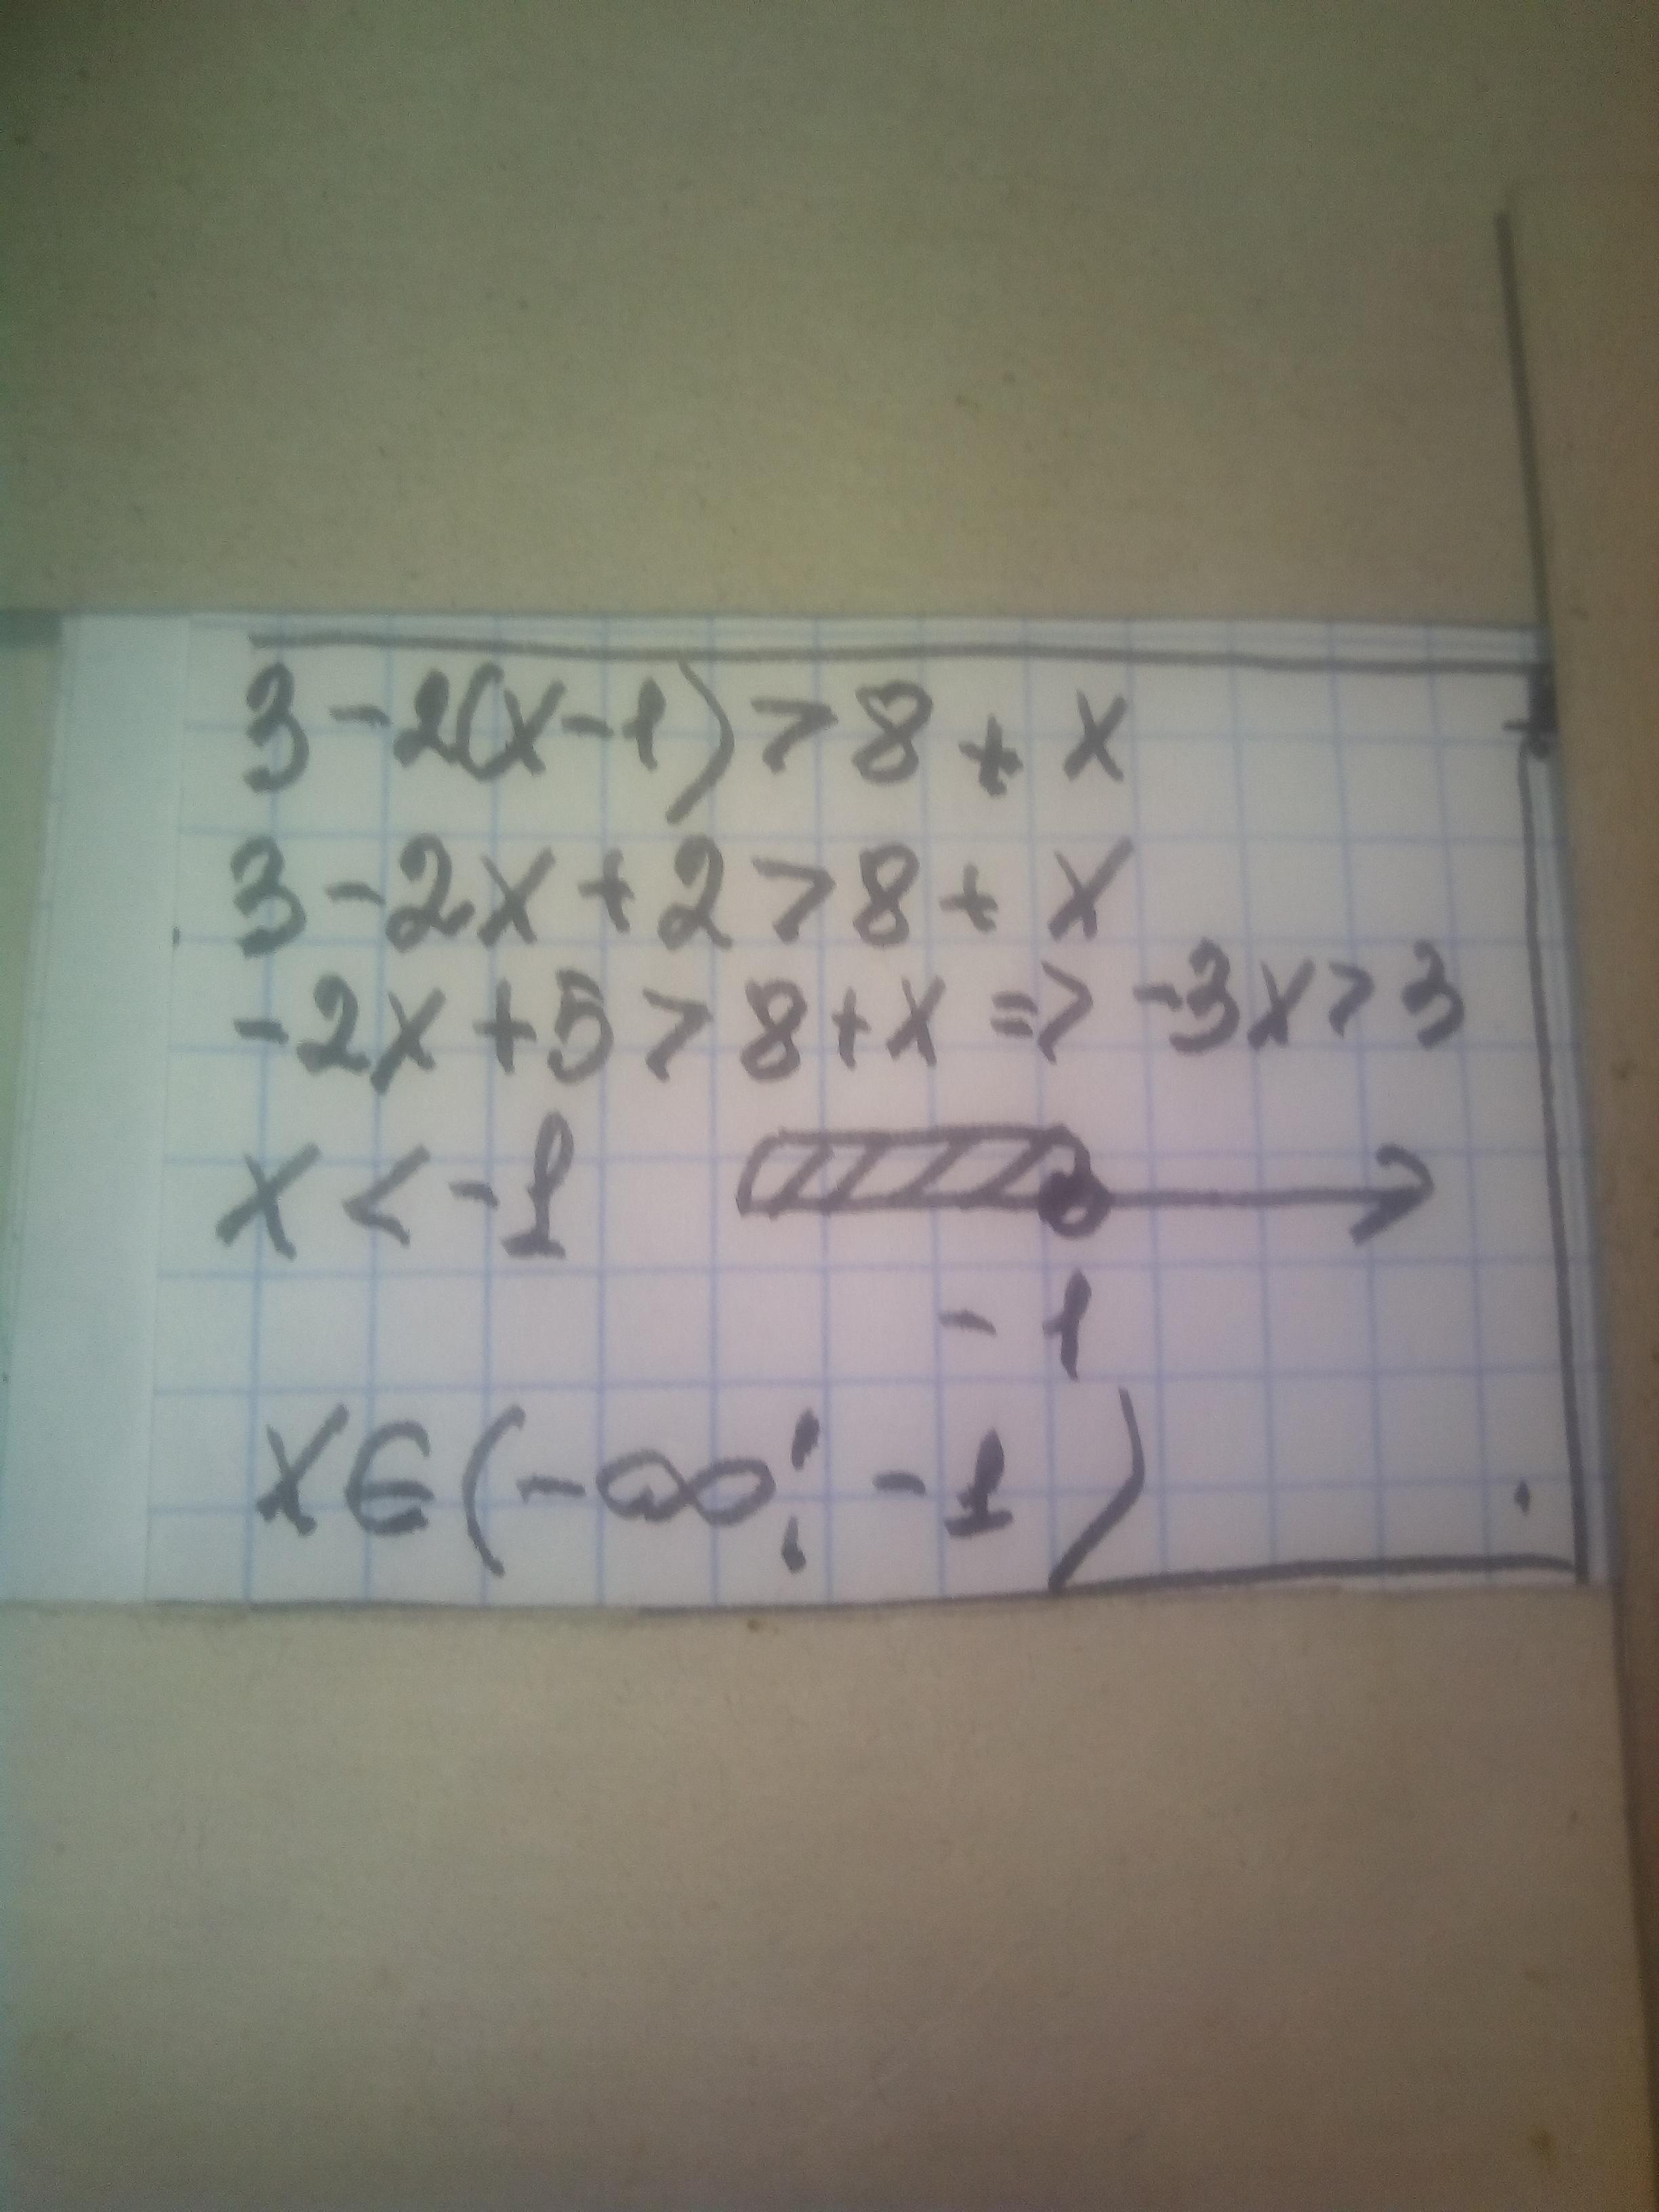 3-2(x-1)>8+x
3-2x+2>8+x
-2x+5>8+x => -3x>3
x<-1
-1
x∈(-∞; -1)